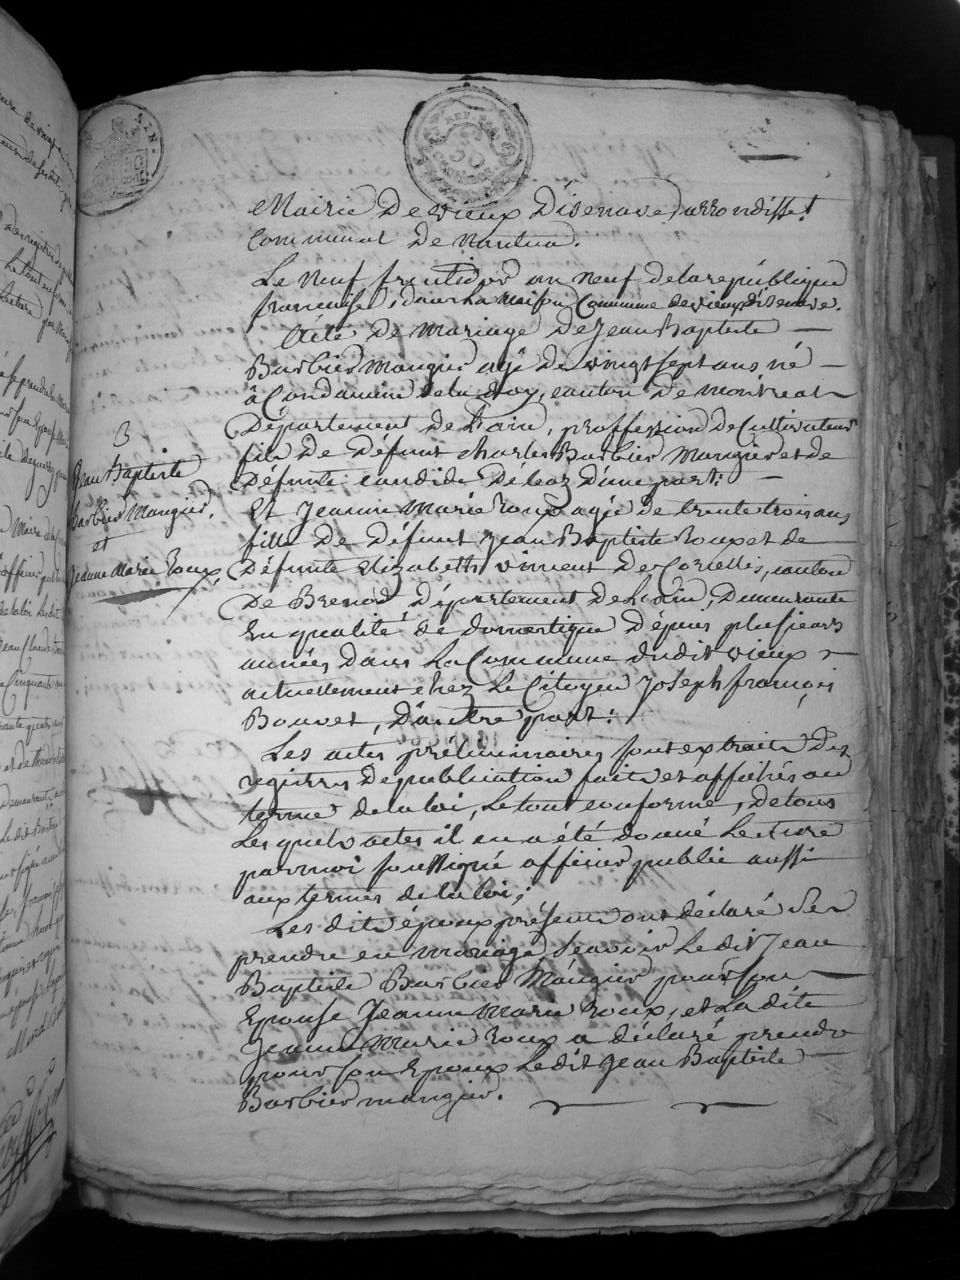 Mairie De vieux Disenave, arrondisse.t
Communal De Nantua.
Le neuf fructidor an neuf de la republique
francaise, dans la maison Commune de vieux disenave.
Acte De mariage De Jean Baptiste —
Barbier Mangier agé De vingt sept ans né —
à Condamine de la doy, canton De montreal
Département de L'ain, proffession De Cultivateur
fils De Défunt Charles Barbier Mangier et de
Défunte Candide Déléaz D'une part: —
Et Jeanne Marie Roux agée de trente trois ans
fille De Défunt Jean Baptiste Roux et de
Défunte Elizabeth vincent De Corcelles, canton
De Brenod, Département De L'ain, Demeurante
En qualité de domestique Dépuis plusieurs
années Dans La Commune dudit vieux
actuellement chez Le Citoyen Joseph françois
Bouvet, D'autre part:
Les actes préliminaires sont extraits Des
registres De publication faits et affichés au
terme de la loi, Le tout conforme, De tous
Les quels actes il en a été donné Lecture
par moi soussigné officier public aussi
aux termes de la loi;
Les dits époux présents ont déclaré Se
prendre en mariage, Scavoir Le dit Jean
Baptiste Barbier Mangier pour son
Epouse Jeanne Marie Roux, et La dite
Jeanne Marie Roux a déclaré prendre
pour son Epoux Le dit Jean Baptiste
Barbier mangier.
3
Jean Baptiste
Barbier Mangier,
et
Jeanne Marie Roux,